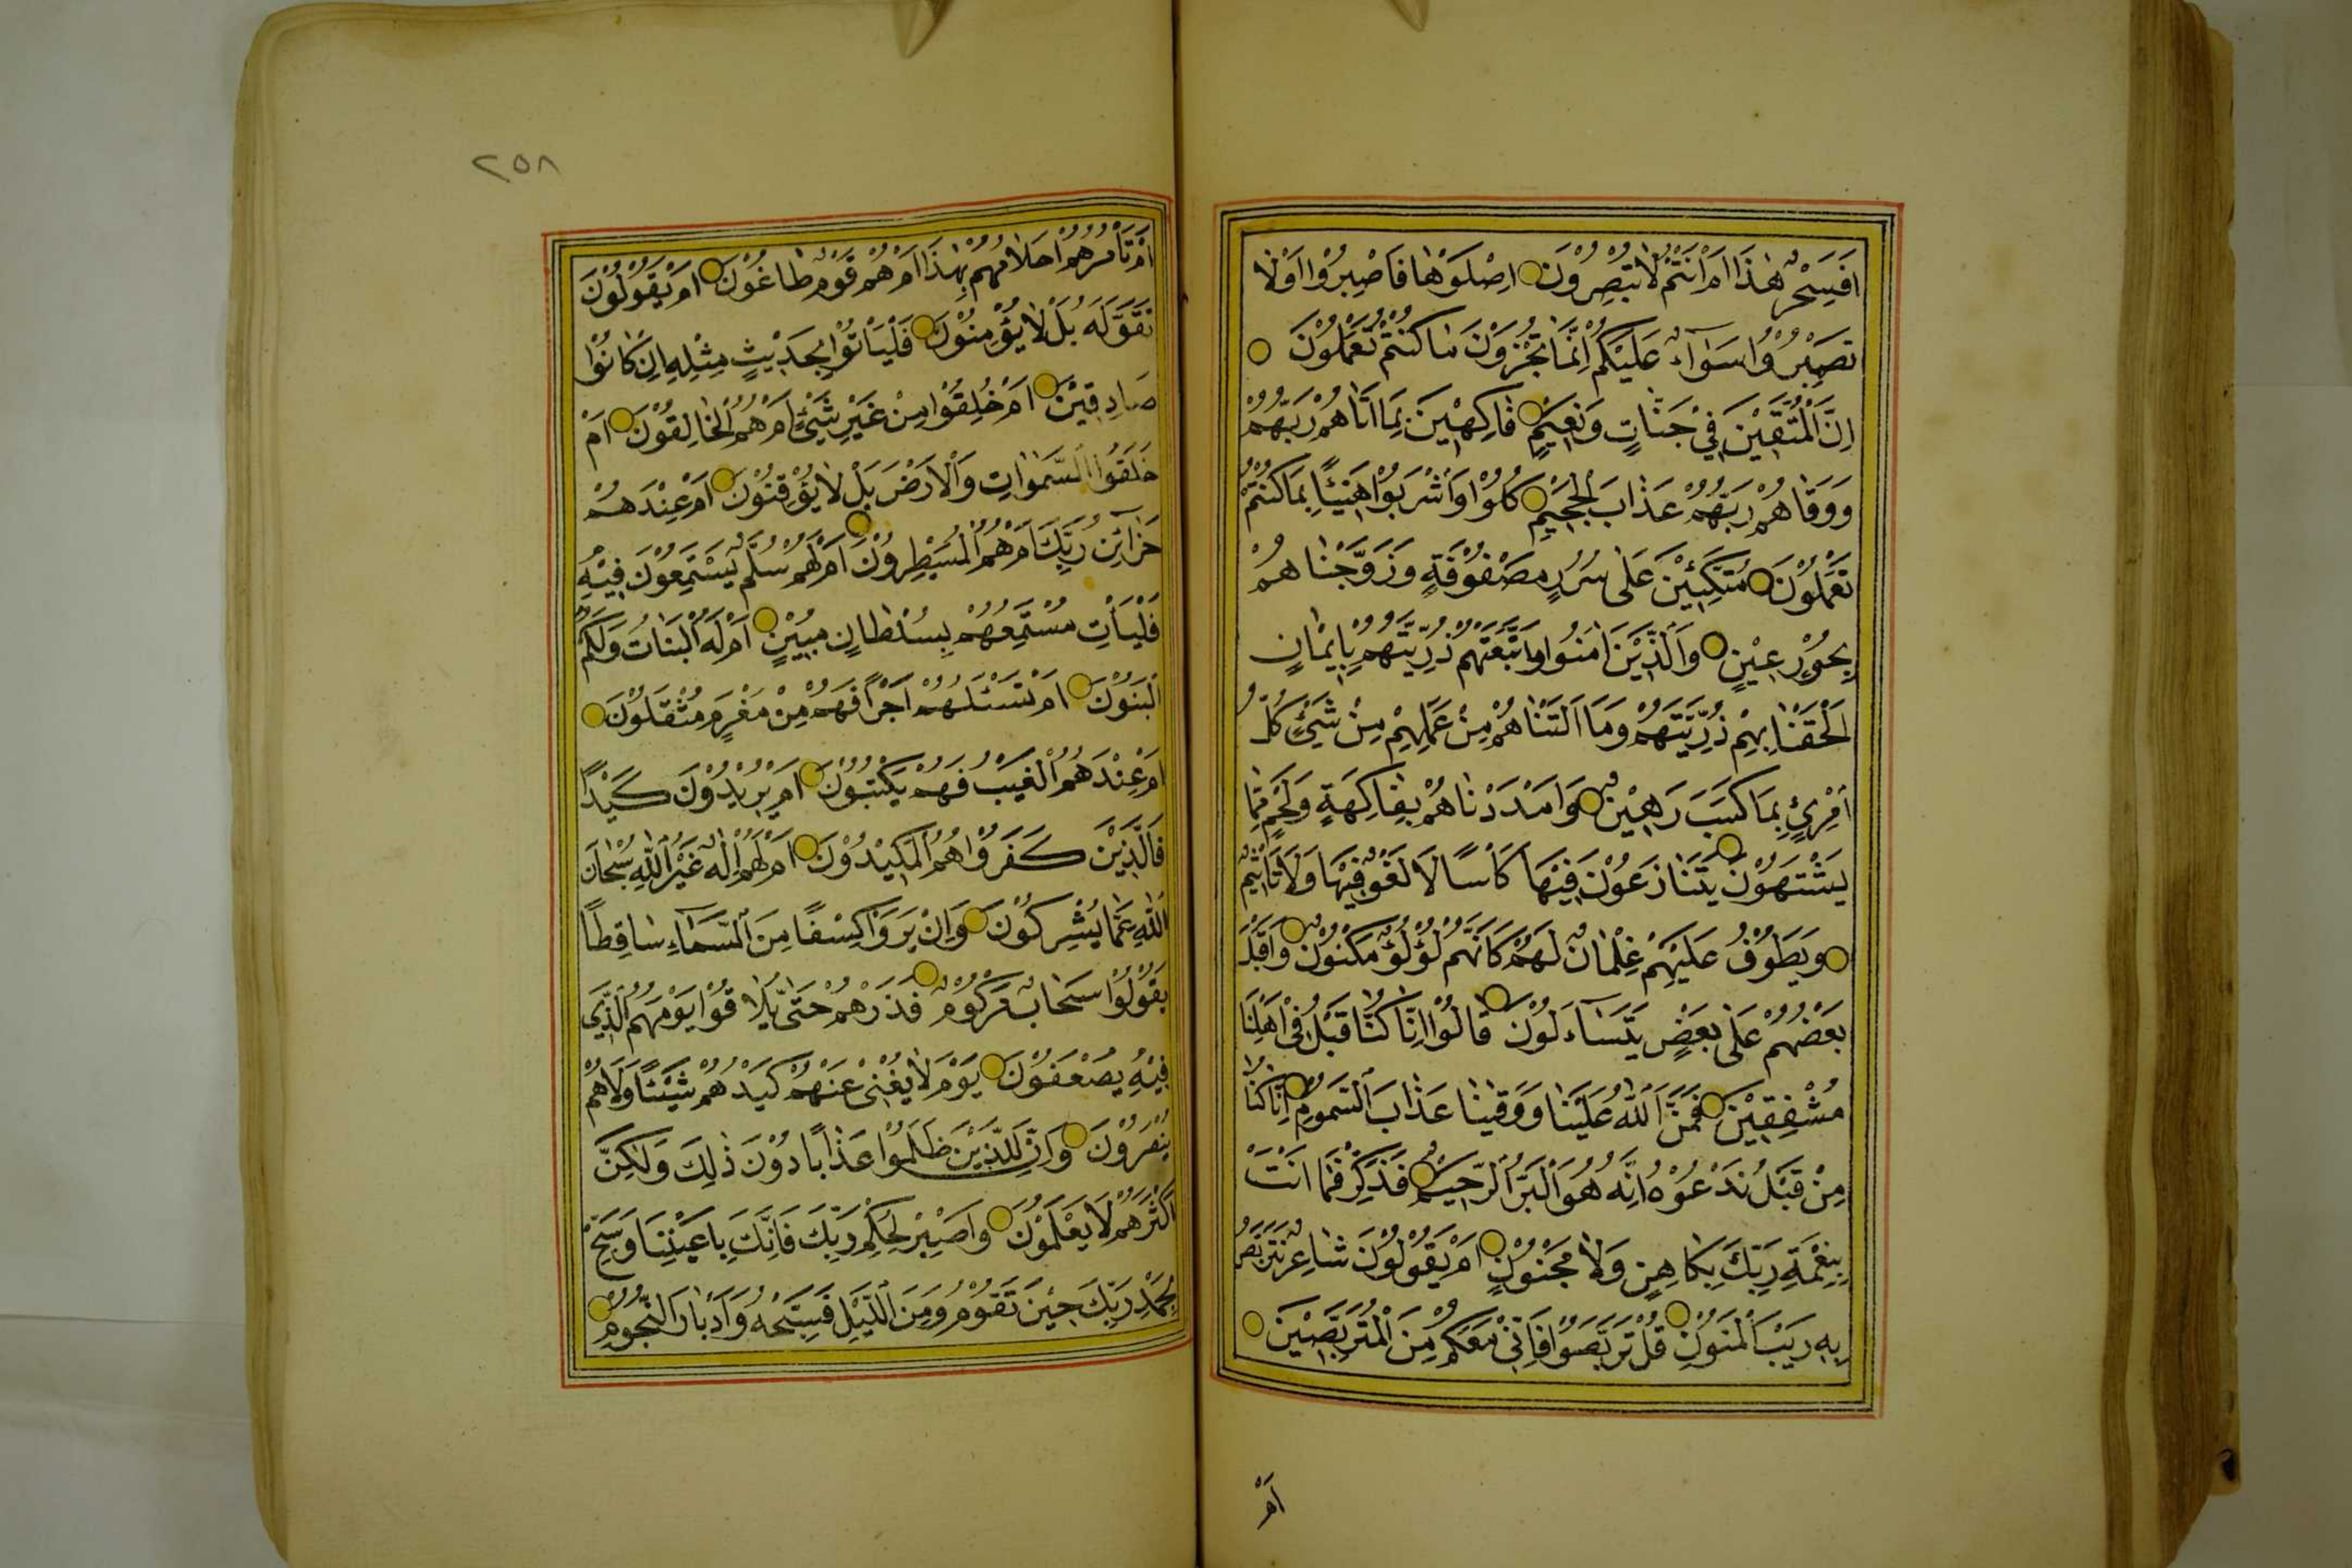 اَفَسِحْرٌ هٰذَا اَمْ اَنْتُمْ لَا تُبْصِرُونَ ۝ اِصْلَوْهَا فَاصْبِرُوا اَوْ لَا
تَصْبِرُوا سَوَاءٌ عَلَيْكُمْ اِنَّمَا تُجْزَوْنَ مَا كُنْتُمْ تَعْمَلُونَ ۝
اِنَّ الْمُتَّقِينَ فِي جَنَّاتٍ وَنَعِيمٍ ۝ فَاكِهِينَ بِمَا اٰتَاهُمْ رَبُّهُمْ
وَوَقَاهُمْ رَبُّهُمْ عَذَابَ الْجَحِيمِ ۝ كُلُوا وَاشْرَبُوا هَنِيئًا بِمَا كُنْتُمْ
تَعْمَلُونَ ۝ مُتَّكِئِينَ عَلٰى سُرُرٍ مَصْفُوفَةٍ وَزَوَّجْنَاهُمْ
بِحُورٍ عِينٍ ۝ وَالَّذِينَ اٰمَنُوا وَاتَّبَعَتْهُمْ ذُرِّيَّتُهُمْ بِاِيمَانٍ
اَلْحَقْنَا بِهِمْ ذُرِّيَّتَهُمْ وَمَا اَلَتْنَاهُمْ مِنْ عَمَلِهِمْ مِنْ شَيْءٍ كُلُّ
امْرِئٍ بِمَا كَسَبَ رَهِينٌ ۝ وَاَمْدَدْنَاهُمْ بِفَاكِهَةٍ وَلَحْمٍ مِمَّا
يَشْتَهُونَ ۝ يَتَنَازَعُونَ فِيهَا كَاْسًا لَا لَغْوٌ فِيهَا وَلَا تَاْثِيمٌ
۝ وَيَطُوفُ عَلَيْهِمْ غِلْمَانٌ لَهُمْ كَاَنَّهُمْ لُؤْلُؤٌ مَكْنُونٌ ۝ وَاَقْبَلَ
بَعْضُهُمْ عَلٰى بَعْضٍ يَتَسَاءَلُونَ ۝ قَالُوا اِنَّا كُنَّا قَبْلُ فِي اَهْلِنَا
مُشْفِقِينَ ۝ فَمَنَّ اللّٰهُ عَلَيْنَا وَوَقٰينَا عَذَابَ السَّمُومِ ۝ اِنَّا كُنَّا
مِنْ قَبْلُ نَدْعُوهُ اِنَّهُ هُوَ الْبَرُّ الرَّحِيمُ ۝ فَذَكِّرْ فَمَا اَنْتَ
بِنِعْمَةِ رَبِّكَ بِكَاهِنٍ وَلَا مَجْنُونٍ ۝ اَمْ يَقُولُونَ شَاعِرٌ نَتَرَبَّصُ
بِهِ رَيْبَ الْمَنُونِ ۝ قُلْ تَرَبَّصُوا فَاِنِّي مَعَكُمْ مِنَ الْمُتَرَبِّصِينَ ۝
اَمْ
٢٥٨
اَمْ تَاْمُرُهُمْ اَحْلَامُهُمْ بِهٰذَا اَمْ هُمْ قَوْمٌ طَاغُونَ ۝ اَمْ يَقُولُونَ
تَقَوَّلَهُ بَلْ لَا يُؤْمِنُونَ ۝ فَلْيَاْتُوا بِحَدِيثٍ مِثْلِهِ اِنْ كَانُوا
صَادِقِينَ ۝ اَمْ خُلِقُوا مِنْ غَيْرِ شَيْءٍ اَمْ هُمُ الْخَالِقُونَ ۝ اَمْ
خَلَقُوا السَّمٰوَاتِ وَالْاَرْضَ بَلْ لَا يُوقِنُونَ ۝ اَمْ عِنْدَهُمْ
خَزَائِنُ رَبِّكَ اَمْ هُمُ الْمُسَيْطِرُونَ ۝ اَمْ لَهُمْ سُلَّمٌ يَسْتَمِعُونَ فِيهِ
فَلْيَاْتِ مُسْتَمِعُهُمْ بِسُلْطَانٍ مُبِينٍ ۝ اَمْ لَهُ الْبَنَاتُ وَلَكُمُ
الْبَنُونَ ۝ اَمْ تَسْئَلُهُمْ اَجْرًا فَهُمْ مِنْ مَغْرَمٍ مُثْقَلُونَ ۝
اَمْ عِنْدَهُمُ الْغَيْبُ فَهُمْ يَكْتُبُونَ ۝ اَمْ يُرِيدُونَ كَيْدًا
فَالَّذِينَ كَفَرُوا هُمُ الْمَكِيدُونَ ۝ اَمْ لَهُمْ اِلٰهٌ غَيْرُ اللّٰهِ سُبْحَانَ
اللّٰهِ عَمَّا يُشْرِكُونَ ۝ وَاِنْ يَرَوْا كِسْفًا مِنَ السَّمَاءِ سَاقِطًا
يَقُولُوا سَحَابٌ مَرْكُومٌ ۝ فَذَرْهُمْ حَتّٰى يُلَاقُوا يَوْمَهُمُ الَّذِي
فِيهِ يُصْعَقُونَ ۝ يَوْمَ لَا يُغْنِي عَنْهُمْ كَيْدُهُمْ شَيْئًا وَلَا هُمْ
يُنْصَرُونَ ۝ وَاِنَّ لِلَّذِينَ ظَلَمُوا عَذَابًا دُونَ ذٰلِكَ وَلٰكِنَّ
اَكْثَرَهُمْ لَا يَعْلَمُونَ ۝ وَاصْبِرْ لِحُكْمِ رَبِّكَ فَاِنَّكَ بِاَعْيُنِنَا وَسَبِّحْ
بِحَمْدِ رَبِّكَ حِينَ تَقُومُ وَمِنَ اللَّيْلِ فَسَبِّحْهُ وَاِدْبَارَ النُّجُومِ ۝